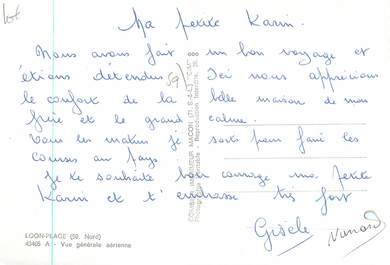 lot
Ma petite Karin.
Nous avons fait un bon voyage et
étions détendus. Ici nous apprécions
(59)
le confort de la belle maison de mon
frère et le grand calme.
Tous les matins je sors pour faire les
courses au pays
je te souhaite bon courage ma petite
Karin et t'embrasse très fort
Gisèle
COMBIER IMPRIMEUR MACON (71. S.-&-L.) "CIM"
Reproduction Interdite
LOON-PLAGE (59. Nord)
43405 A - Vue générale aérienne